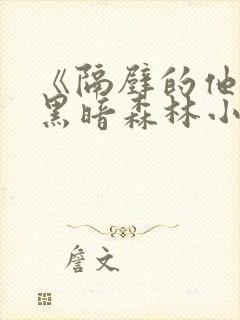 《隔壁的他
黑暗森林小
詹文